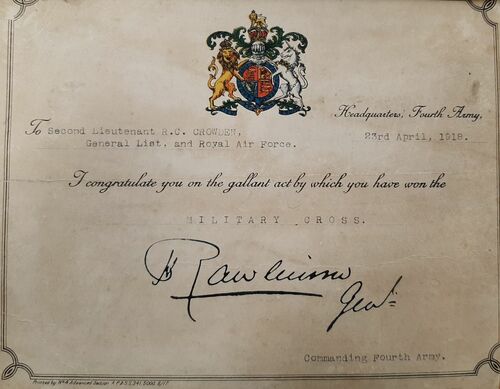 Headquarters, Fourth Army,
To Second Lieutenant R.C. CROWDEN,
23rd April, 1918.
General List. and Royal Air Force.
I congratulate you on the gallant act by which you have won the
MILITARY CROSS.
Rawlinson
Genl.
Commanding Fourth Army.
Printed by No 4 Advanced Section A.P. & S.S. 341. 5000. 8/17.